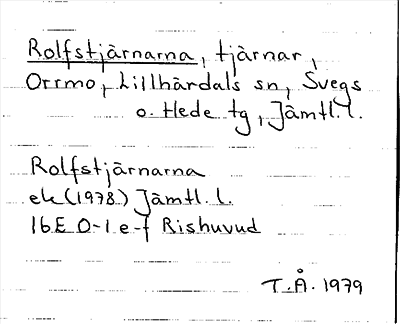 Rolfstjärnarna, tjärnar,
Orrmo, Lillhärdals sn, Svegs
o. Hede tg, Jämtl. l.
Rolfstjärnarna
ek (1978) Jämtl. l.
16E 0-1 e-f Rishuvud
T.Å. 1979